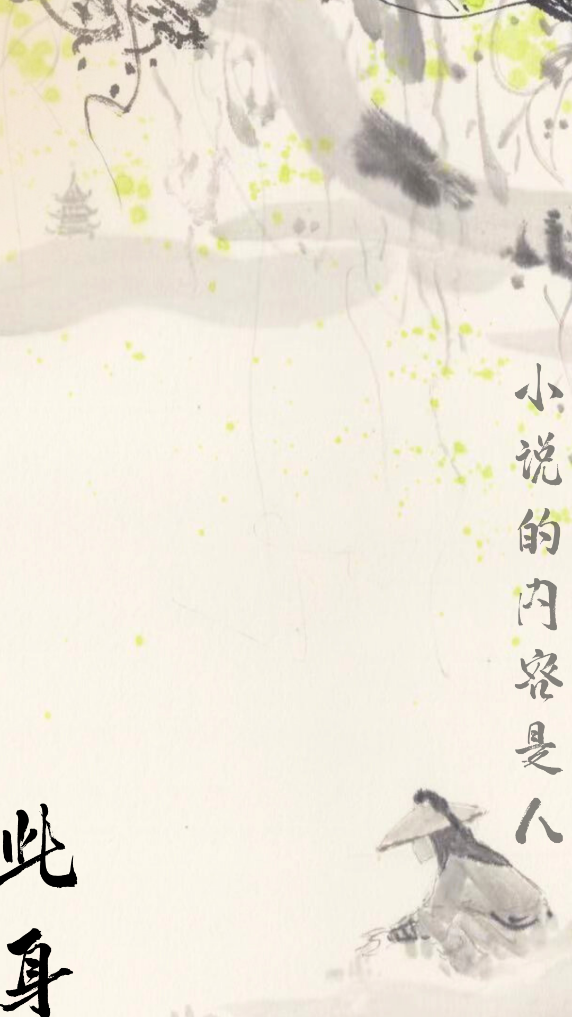 小说的内容是人
此身